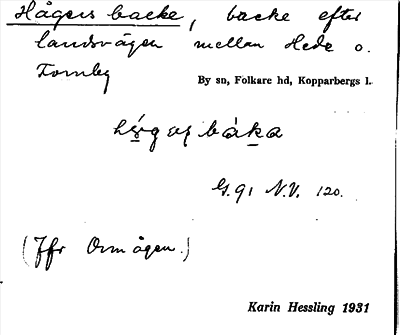 Hågers backe, backe efter
landsvägen mellan Hede o.
Fornby
By sn, Folkare hd, Kopparbergs l.
båka
G. 91 N.V. 120.
(Jfr Ormågen.)
Karin Hessling 1931